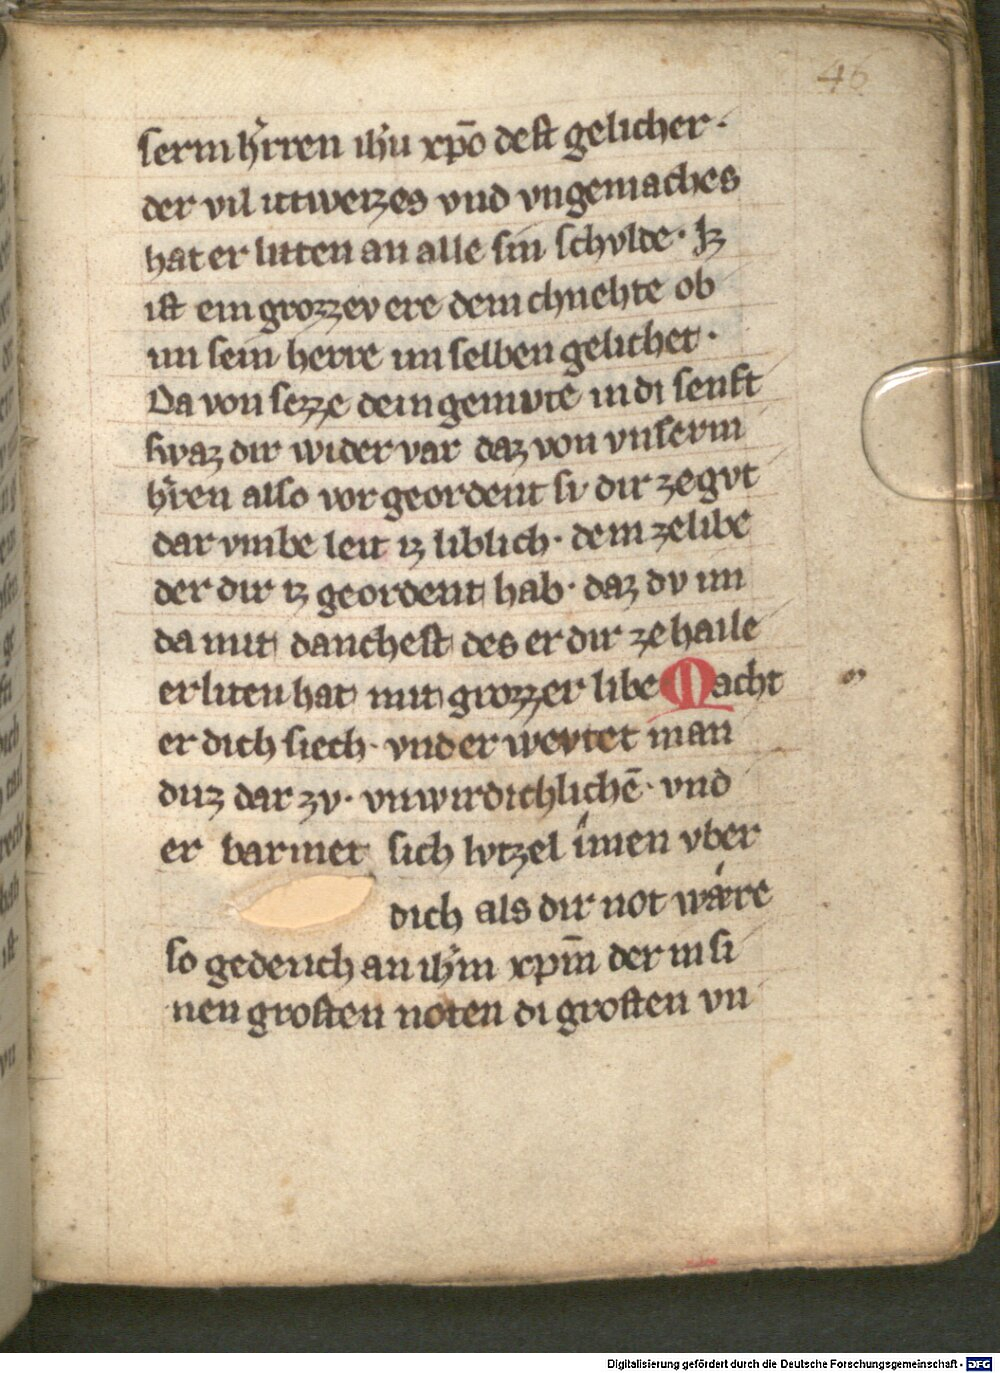 46
serm hˀren ihˀu xp̄o dest gelicher ·
der vil ittweizes vnd vngemaches
hat er liten an alle sin schvlde · Iz
ist ein grozzev ere dem chnehte ob
im sein herre im selben gelichet ·
Da von sezze dein gemvte in di senft
swaz dir wider var daz von vnserm
hˀren also vor geordent si dir ze gvt
dar vmbe leit iz liblich · dem ze libe
der dir iz geordent hab · daz dv im
da mit danchest des er dir ze haile
erliten hat mit grozzer libe Macht
er dich siech · vnd er wevtet man
duz dar zv · vnwirdichlichē · vnd
er barmet sich lvtzel imen vber
dich als dir not wåre
so gedench an ihˀm xpm̄ der in si
nen grosten noten di grosten vn
Digitalisierung gefördert durch die Deutsche Forschungsgemeinschaft - DFG